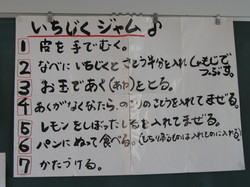 いちじくジャム♪
1 皮を手でむく。
2 なべにいちじくと さとう半分と入れ しゃもじで
つぶす。
3 お玉であく(あわ)をとる。
4 あくがなくなったら、のこりのさとうを入れてまぜる。
5 レモンをしぼったしるを入れてまぜる。
6 パンにぬって食べる。
7 かたづける。